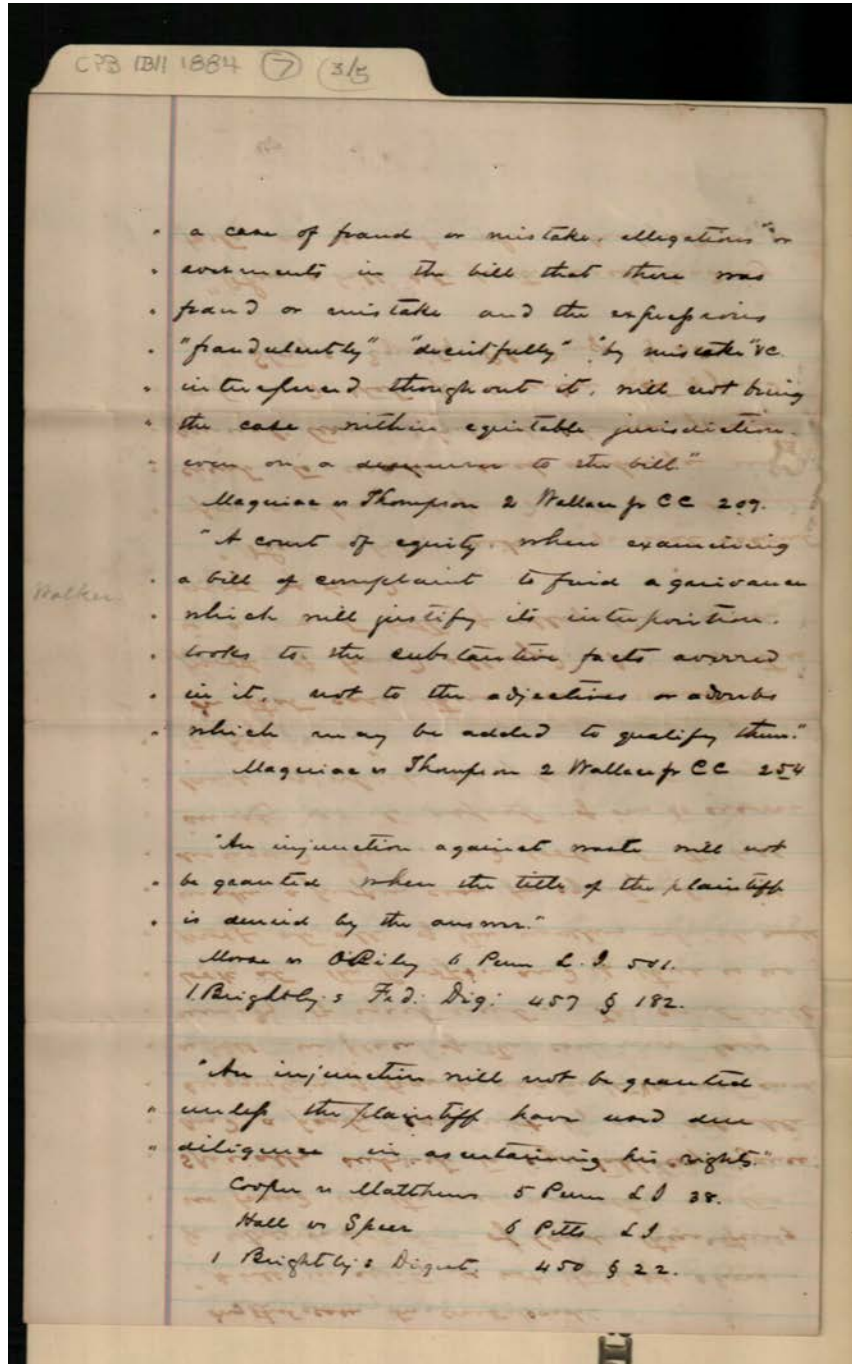 CPB IBII 1884 (7) (3/5)
" a case of fraud or mistake, allegations or
" averments in the bill that there was
" fraud or mistake and the expressions
" "fraudulently" "deceitfully" "by mistake" &c
" interspersed throughout it, will not bring
" the case within equitable jurisdiction.
" even on a demurrer to the bill"
Maguiac vs Thompson 2 Wallace jr CC 209.
"A court of equity. when examining
Walker
" a bill of complaint to find a grievance
" which will justify its interposition.
" looks to the substantive facts averred
" in it, not to the adjectives or adverbs
" which may be added to qualify them."
Maguiac vs Thompson 2 Wallace jr CC 254
"An injunction against waste will not
" be granted when the title of the plaintiff
" is denied by the answer."
Morse vs O'Riley 6 Penn L. J. 501.
1 Brightly's Fed: Dig: 457 § 182.
"An injunction will not be granted
" unless the plaintiff have used due
" diligence in ascertaining his rights."
Cooper vs Matthews 5 Penn L J 38.
Hall vs Speer 6 Pitts L J
1 Brightly's Digest. 450 § 22.